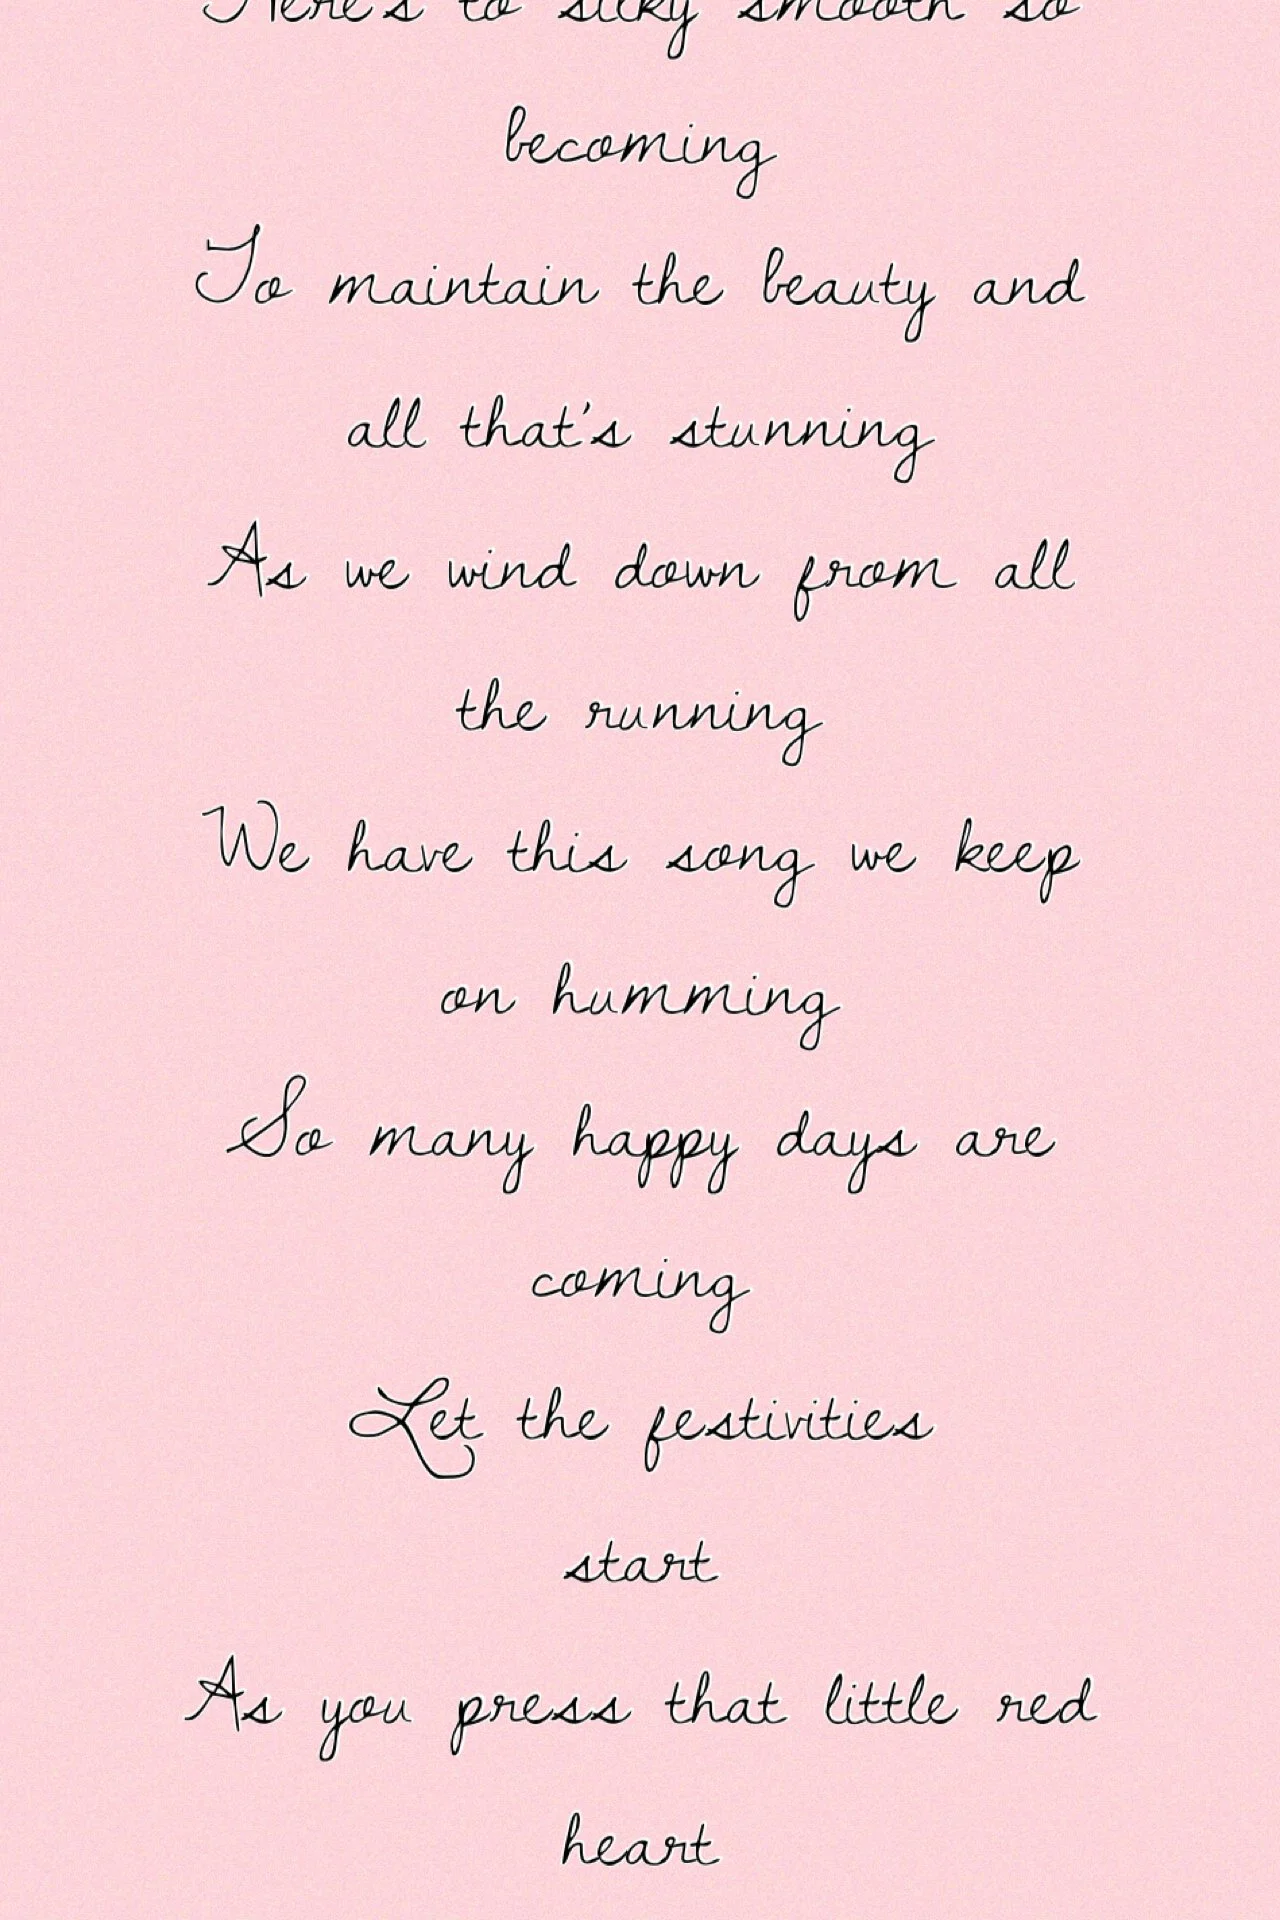 Here's to silky smooth so
becoming
To maintain the beauty and
all that's stunning
As we wind down from all
the running
We have this song we keep
on humming
So many happy days are
coming
Let the festivities
start
As you press that little red
heart